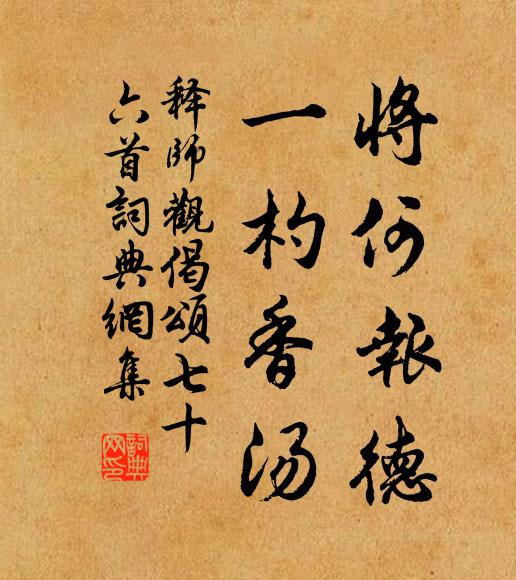 將何報德
一杓香湯
释師觀偈頌七十
六首詞典網集
詞典
网印